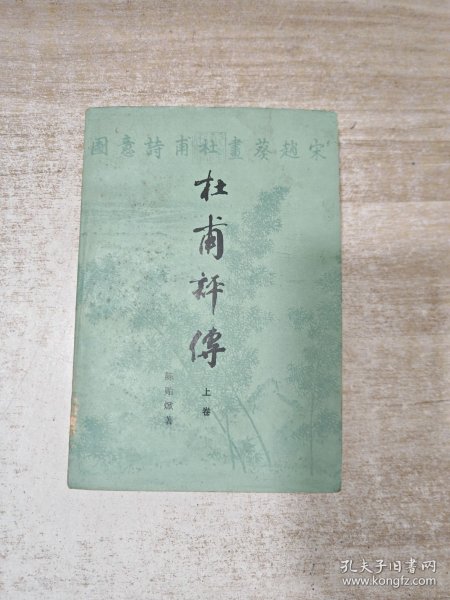 宋趙葵畫杜甫詩意圖
杜甫評傳
上卷
陳貽焮著
孔夫子旧书网
www.kongfz.com